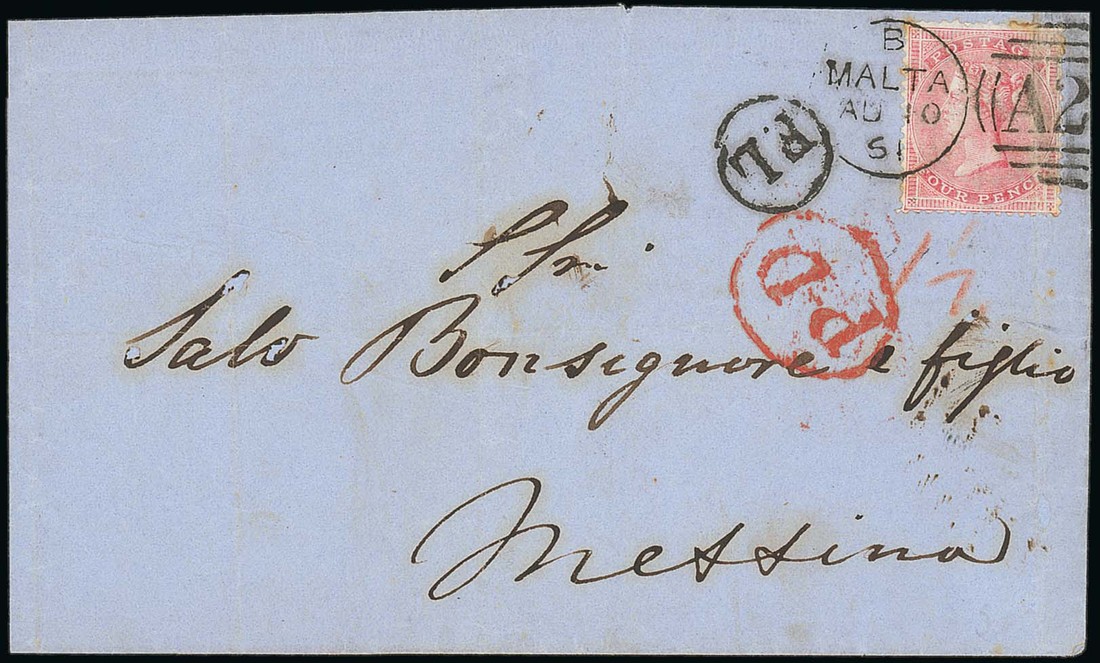 B
MALTA
AU 10
61
A2
POSTAGE
FOUR PENCE
P.L
PD
S Sri.
Salvo Bonsignore e figlio
Messina